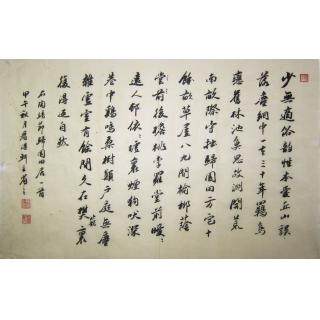 少無適俗韻性本愛丘山誤
落塵網中一去三十年羈鳥
戀舊林池魚思故淵開荒
南畝際守拙歸園田方宅十
餘畝草屋八九間榆柳蔭
堂前後簷桃李羅堂前曖〻
遠人邨依〻墟里煙狗吠深
巷中鷄鳴桑樹顛戶庭無塵
雜虛室有餘閒久在樊籠裏
復得返自然
右陶靖節歸園田居一首
甲午秋月